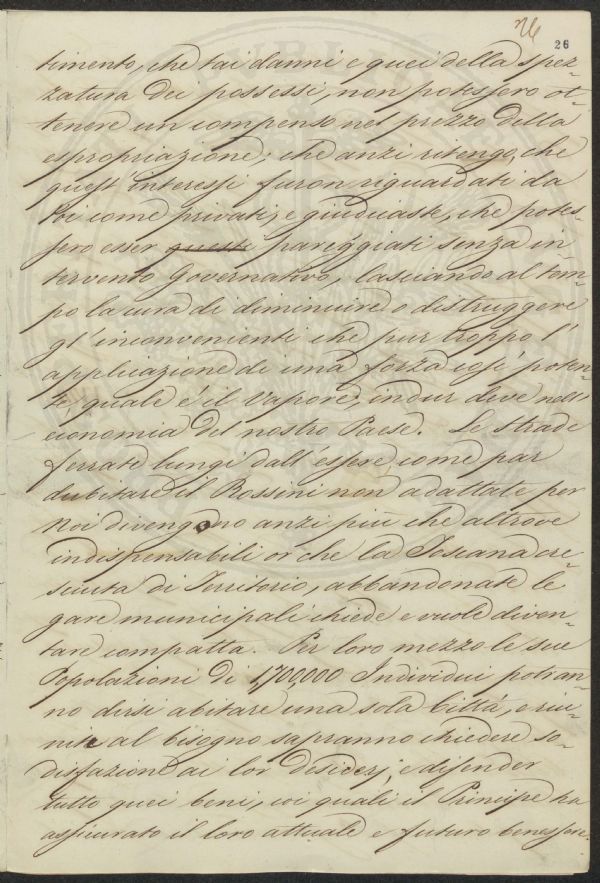 26
26
timento, che tai danni e quei della spez-
zatura dei possessi, non potessero ot-
tenere un compenso nel prezzo della
espropriazione; che anzi ritengo, che
quest'interessi furon riguardati da
voi come privati, e giudicaste, che potes-
sero esser queste pareggiati senza in-
tervento Governativo, lasciando al tem-
po la cura di diminuire o distruggere
gl'inconvenienti che pur troppo l'
applicazione di una forza così poten-
te, quale è il vapore, indur deve nell'
economia del nostro Paese. Le strade
ferrate lungi dall'essere, come par
dubitare il Rossini non adattate per
Noi divengono anzi più che altrove
indispensabili or che la Toscana cre-
sciuta di Territorio, abbandonate le
gare municipali chiede e vuole diven-
tare compatta. Per loro mezzo le sue
Popolazioni di 1,700,000 Individui potran-
no dirsi abitare una sola Città, e riu-
nite al bisogno sapranno chiedere so-
disfazione ai lor desiderj, e difender
tutto quei beni, coi quali il Principe ha
assicurato il loro attuale e futuro benessere.